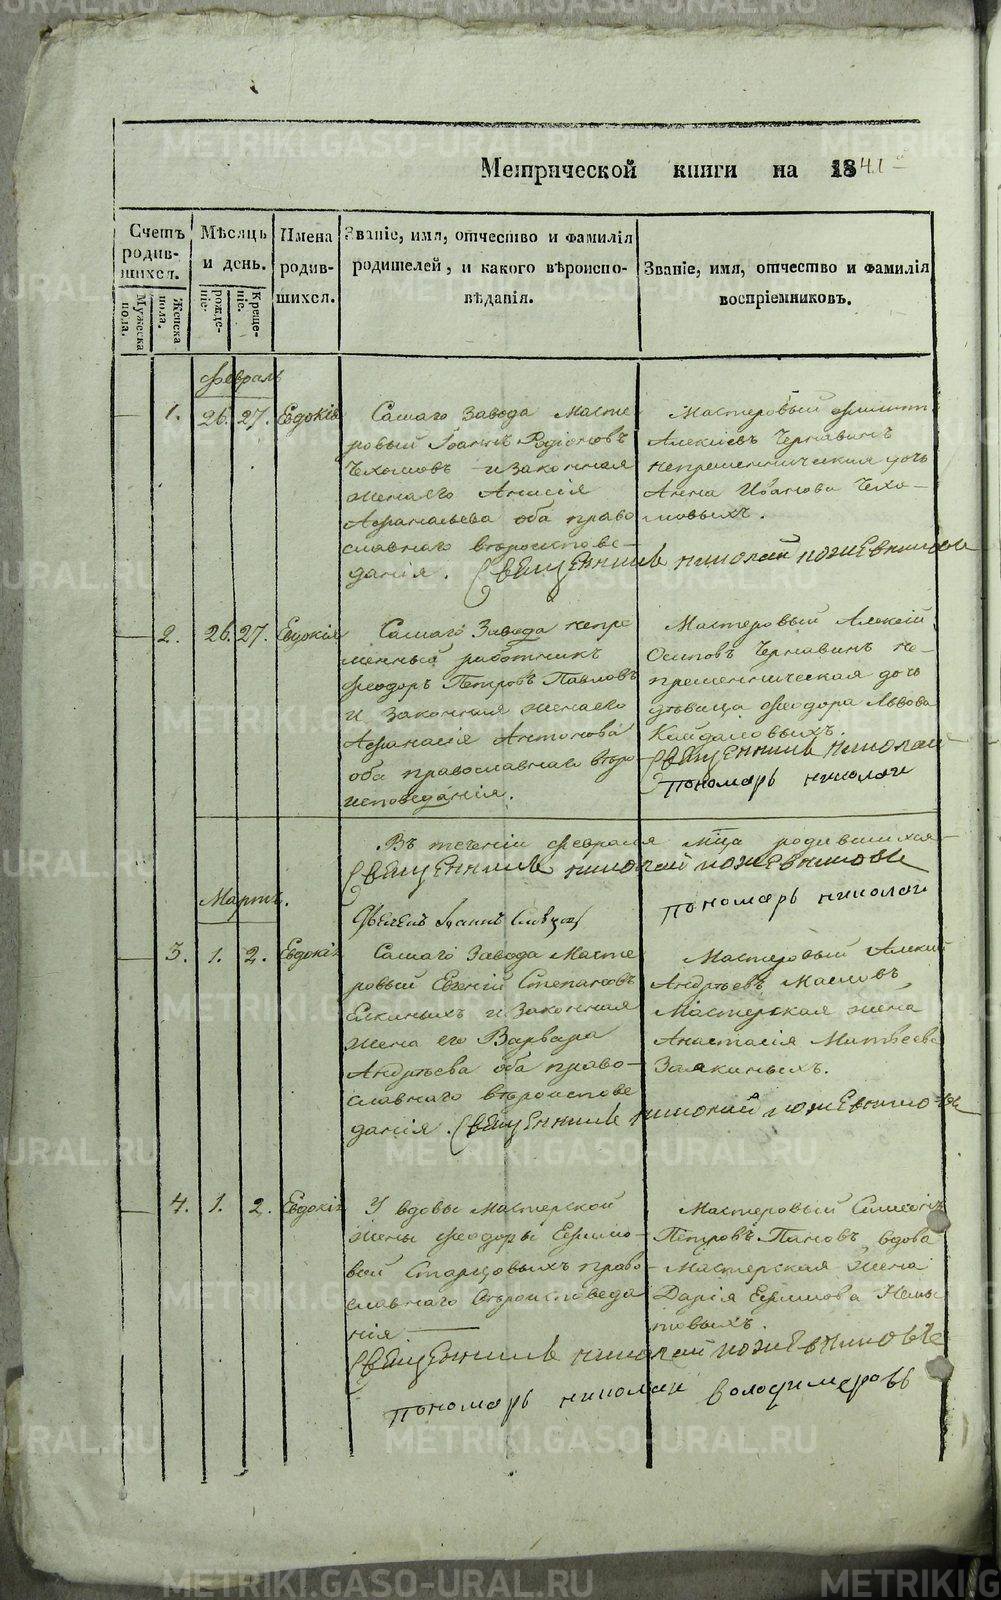 Метрической книги на 1841
Счетъ родив-шихся.
Мужеска пола.
Женска пола.
Мѣсяцъ и день.
рожде-ніе.
Креще-ніе.
Имена родив-шихся.
Званіе, имя, отчество и фамилія
родителей, и какого вѣроиспо-
вѣданія.
Званіе, имя, отчество и фамилія
воспріемниковъ.
Февраль
1. 26. 27. Евдокія
Сашаго Завода Масте
ровый Іоаннъ Родіоновъ
Чехомовъ и законная
жена его Анисія
Афанасьева оба право
славнаго вѣроисповѣ-
данія.
Мастеровый Филиппъ
Алекіевъ Чернавинъ
непременническая дочь
Анна Иванова Чехо-
мовыхъ.
Священникъ Николай Кожевниковъ
2. 26. 27. Евдокія
Сашаго Завода непре
менный работникъ
Феодоръ Петровъ Павловъ
и законная жена его
Афанасія Антонова
оба православнаго вѣро
исповеданія.
Мастеровый Алексій
Осиповъ Чернавинъ не-
пременническая дочь
дѣвица Феодора Львова
Кайдаловыхъ.
Священникъ Николай
Пономарь Николай
Въ теченіи февраля м-ца родившихся
Священникъ Николай Кожевниковъ
Пономарь Николай
Мартъ.
3. 1. 2. Евдокія
Сашаго Завода Масте
ровый Евгеній Степановъ
Елкиныхъ и законная
жена его Варвара
Андрѣева оба право-
славнаго вѣроисповѣ
данія.
Мастеровый Алексій
Андрѣевъ Масловъ
Мастерская жена
Анастасія Матвѣева
Заякиныхъ.
Священникъ Николай Кожевниковъ
4. 1. 2. Евдокія
У вдовы мастерской
жены Феодоры Ефимо-
вой Старцовыхъ право-
славнаго вѣроисповеда
нія.
Мастеровый Симеонъ
Петровъ Пановъ вдова
Мастерская жена
Дарія Ефимова
Священникъ Николай Кожевниковъ
Пономарь Николай Володимеровъ
METRIKI.GASO-URAL.RU